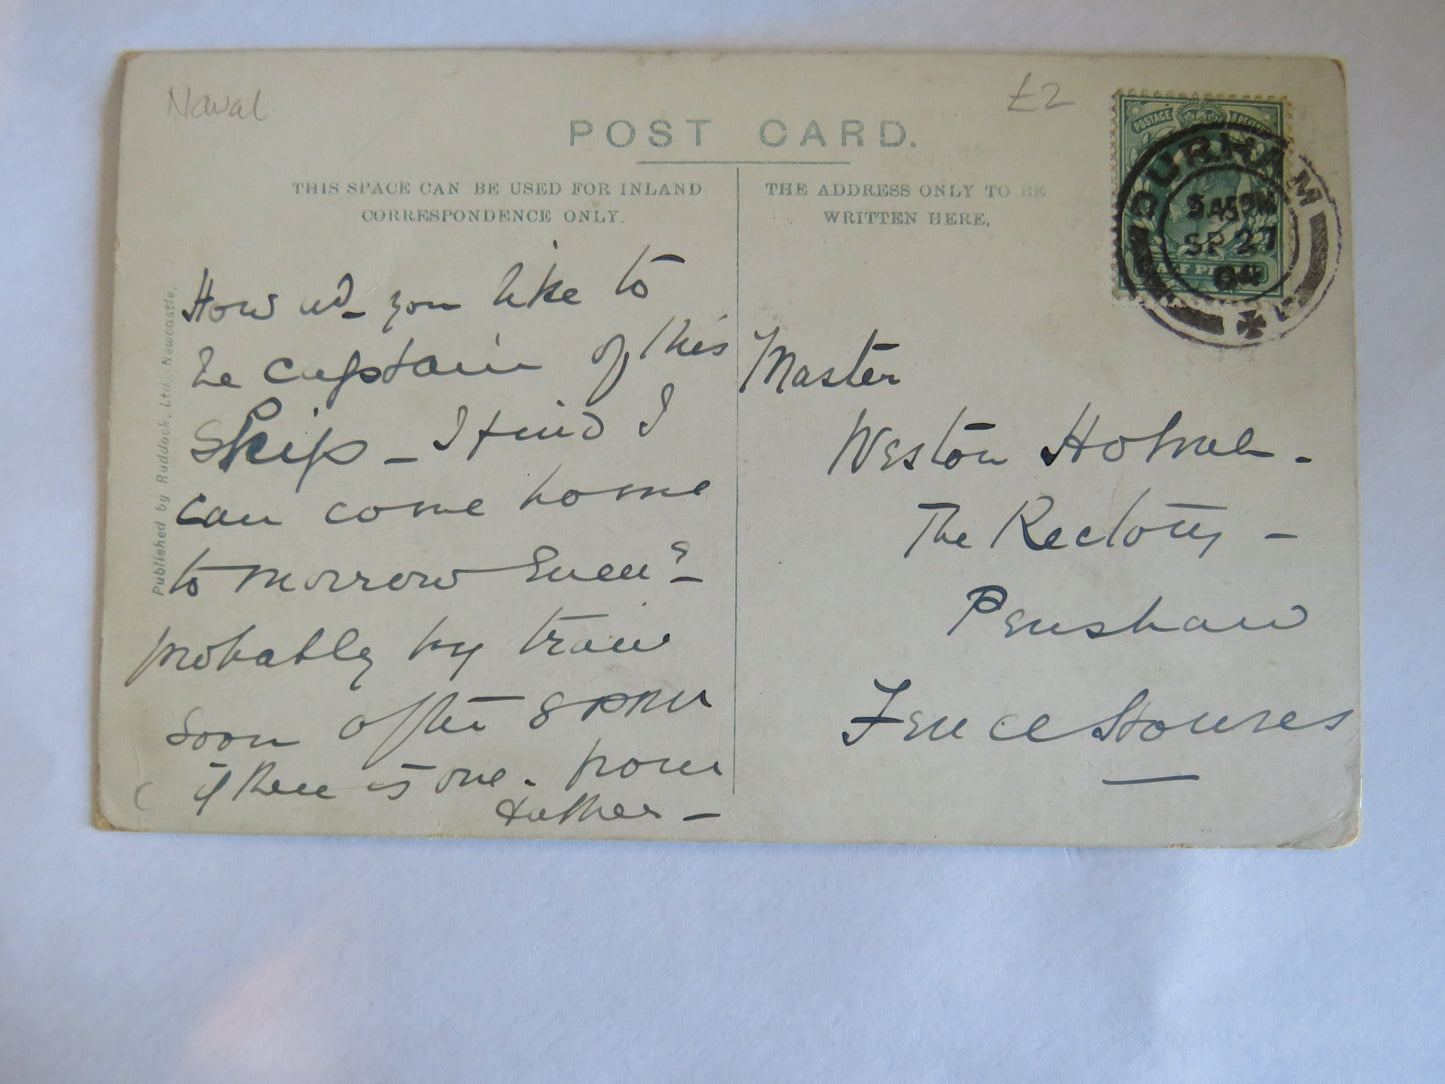 Naval
£2
POST CARD.
THIS SPACE CAN BE USED FOR INLAND
CORRESPONDENCE ONLY.
THE ADDRESS ONLY TO BE
WRITTEN HERE,
POSTAGE
DURHAM
SP 27
04
Published by Ruddock, Ltd. Newcastle.
How wd you like to
be captain of this
Ship – I find I
can come home
tomorrow Eveng –
probably by train
soon after 8 PM
if there is one. from
Father –
Master
Weston
The Rectory –
Penshaw
Fence Houses